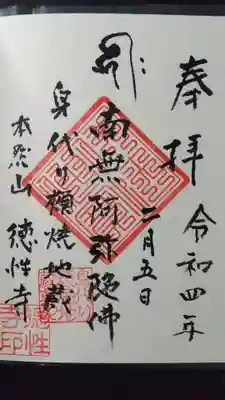 奉拝
令和四年
二月五日
南無阿弥陀佛
身代り頬焼地蔵
本忍山 徳性寺
徳性寺印